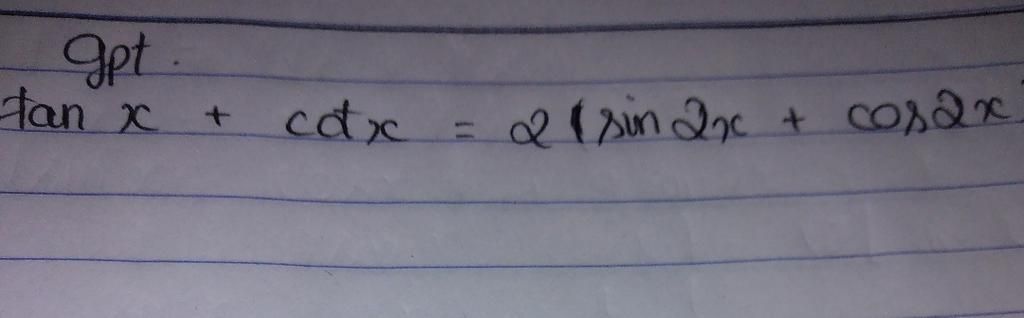 gpt.
tan x + cot x = 2 (sin 2x + cos 2x)